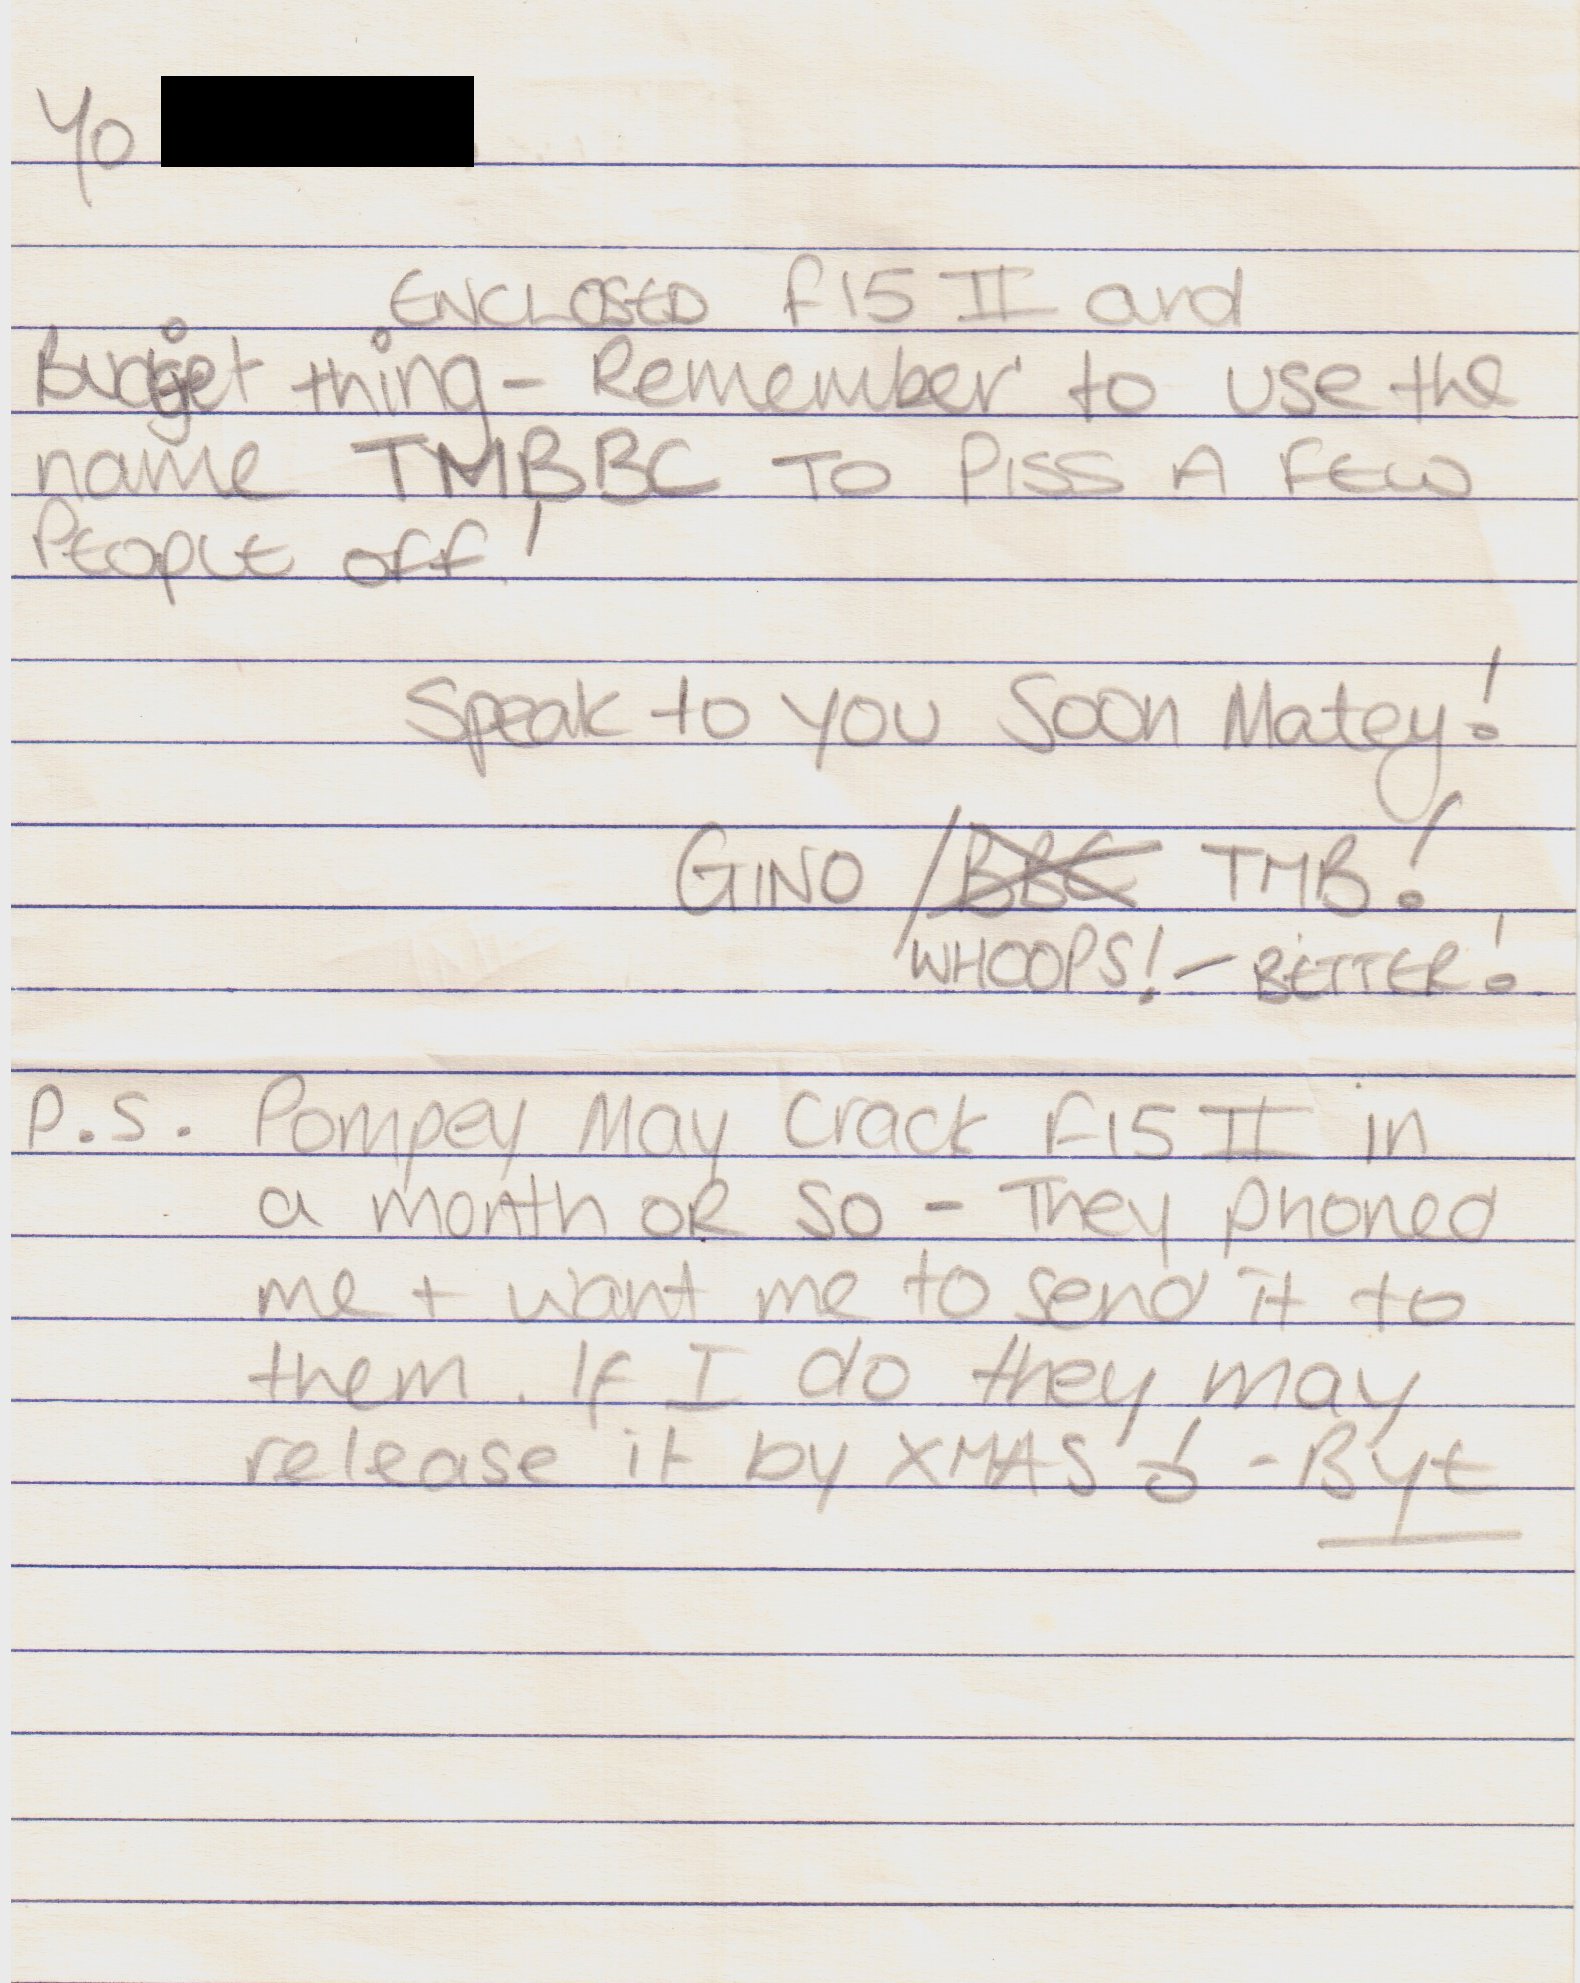 Yo
ENCLOSED F15 II and
Budget thing - Remember to use the
name TMBBC TO PISS A FEW
PEOPLE OFF!
Speak to you Soon Matey!
GINO / BBC TMB!
WHOOPS! - BETTER!
P.S. Pompey May Crack F15 II in
a month OR SO - They phoned
me + want me to send it to
them. If I do they may
release it by XMAS! - Byt